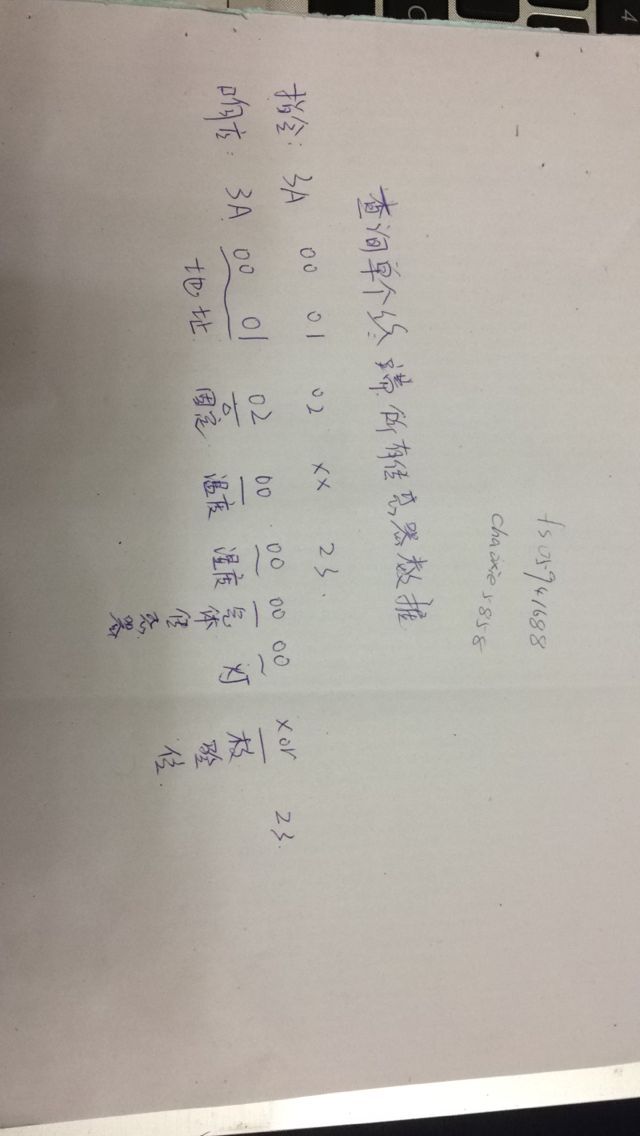 fs05941688
chaoxes858
查询单个终端所有传感器数据
指令: 3A 00 01 02 xx 23.
响应: 3A 00 01 02 00 00 00 00 xor 23.
地址 固定 温度 湿度 气体传感器 灯 校验位